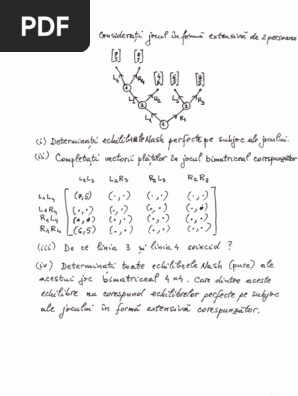 PDF
Considerați jocul în formă extensivă de 2 persoane
L1 R4
L2 R2 L3 R3
L1 R1
(i) Determinați echilibrele Nash perfecte pe subjoc ale jocului.
(ii) Completați vectorii plăților în jocul bimatriceal corespunzător
L2L3 L2R3 R2L3 R2R3
L1L4 (7,5) (·,·) (·,·) (·,·)
L1R4 (·,·) (·,·) (·,·) (·,·)
R1L4 (·,·) (·,·) (·,·) (·,·)
R1R4 (6,5) (·,·) (·,·) (·,·)
(iii) De ce linia 3 și linia 4 coincid ?
(iv) Determinați toate echilibrele Nash (pure) ale
acestui joc bimatriceal 4×4. Care dintre aceste
echilibre nu corespund echilibrelor perfecte pe subjoc
ale jocului în formă extensivă corespunzător.